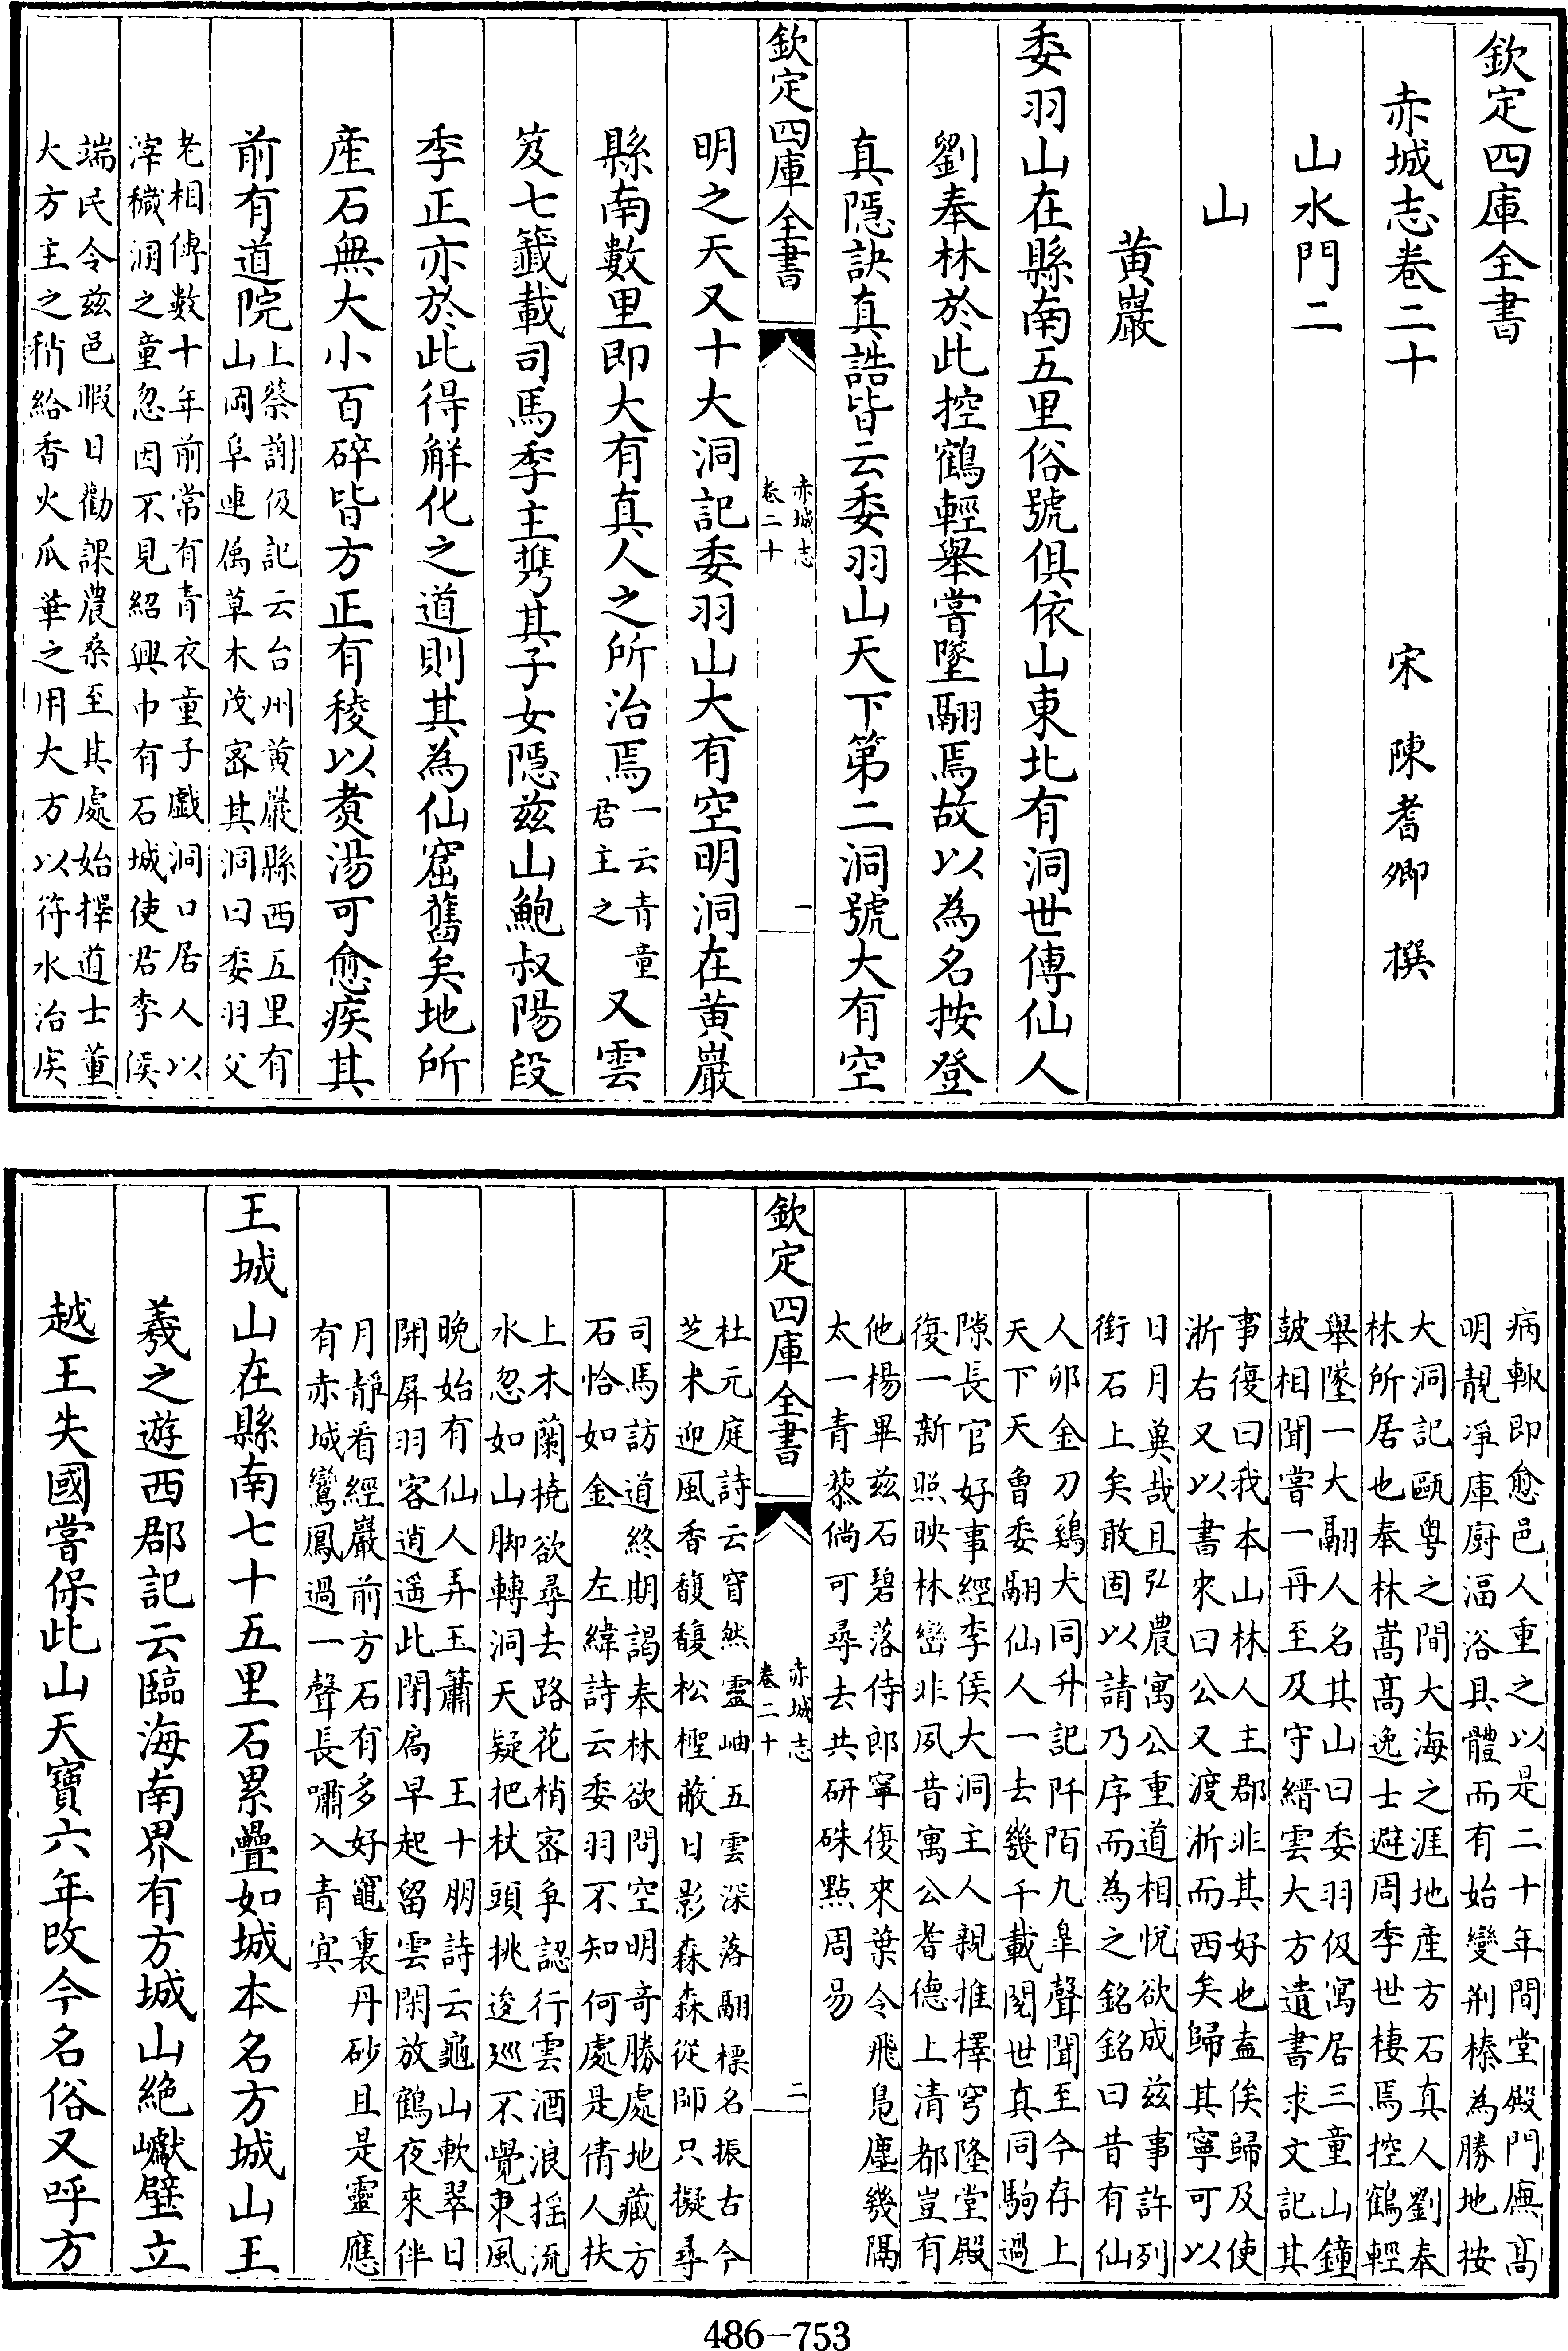 欽定四庫全書
赤城志卷二十
宋 陳耆卿 撰
山水門二
山
黄巖
委羽山在縣南五里俗號俱依山東北有洞世傳仙人
劉奉林於此控鶴輕舉嘗墜翮焉故以為名按登
真隱訣真誥皆云委羽山天下第二洞號大有空
欽定四庫全書
赤城志
卷二十
一
明之天又十大洞記委羽山大有空明洞在黄巖
縣南數里即大有真人之所治焉一云青童君主之又雲
笈七籤載司馬季主擕其子女隱兹山鮑叔陽段
季正亦於此得解化之道則其為仙窟舊矣地所
産石無大小百碎皆方正有稜以煑湯可愈疾其
前有道院上蔡謝伋記云台州黄巖縣西五里有
山岡阜連屬草木茂宻其洞曰委羽父
老相傳數十年前常有青衣童子戲洞口居人以
滓穢溷之童忽因不見紹興中有石城使君李侯
端民令兹邑暇日勸課農桑至其處始擇道士董
大方主之稍給香火瓜華之用大方以符水治疾
病輙即愈邑人重之以是二十年間堂殿門廡髙
明靚淨庫厨湢浴具體而有始變荆榛為勝地按
大洞記甌粤之間大海之涯地産方石真人劉奉
林所居也奉林嵩髙逸士避周季世棲焉控鶴輕
舉墜一大翮人名其山曰委羽伋寓居三童山鐘
鼓相聞嘗一再至及守縉雲大方遺書求文記其
事復曰我本山林人主郡非其好也盍俟歸及使
浙右又以書來曰公又渡浙而西矣歸其寧可以
日月冀哉且弘農寓公重道相悦欲成兹事許列
銜石上矣敢固以請乃序而為之銘銘曰昔有仙
人卯金刀鷄犬同升記阡陌九臯聲聞至今存上
天下天天曾委翮仙人一去幾千載閲世真同駒過
隙長官好事經李侯大洞主人親推擇穹隆堂殿
復一新照映林巒非夙昔寓公耆德上清都豈有
他楊畢兹石碧落侍郎寧復來葉令飛鳧塵幾隅
太一青藜倘可尋去共研硃點周易
欽定四庫全書
赤城志
卷二十
二
杜元庭詩云窅然靈岫五雲深落翮標名振古今
芝术迎風香馥馥松檉蔽日影森森從師只擬尋
司馬訪道終期謁奉林欲問空明奇勝處地藏方
石恰如金 左緯詩云委羽不知何處是倩人扶
上木蘭橈欲尋去路花梢宻争認行雲酒浪揺流
水忽如山脚轉洞天疑把杖頭挑逡巡不覺東風
晩始有仙人弄玉簫 王十朋詩云龜山軟翠日
開屏羽客逍遥此閉扃早起留雲閑放鶴夜來伴
月靜看經巖前方石有多好竈裏丹砂且是靈應
有赤城鸞鳳過一聲長嘯入青冥
王城山在縣南七十五里石累疊如城本名方城山王
羲之遊西郡記云臨海南界有方城山絶巘壁立
越王失國嘗保此山天寶六年改今名俗又呼方
486-753